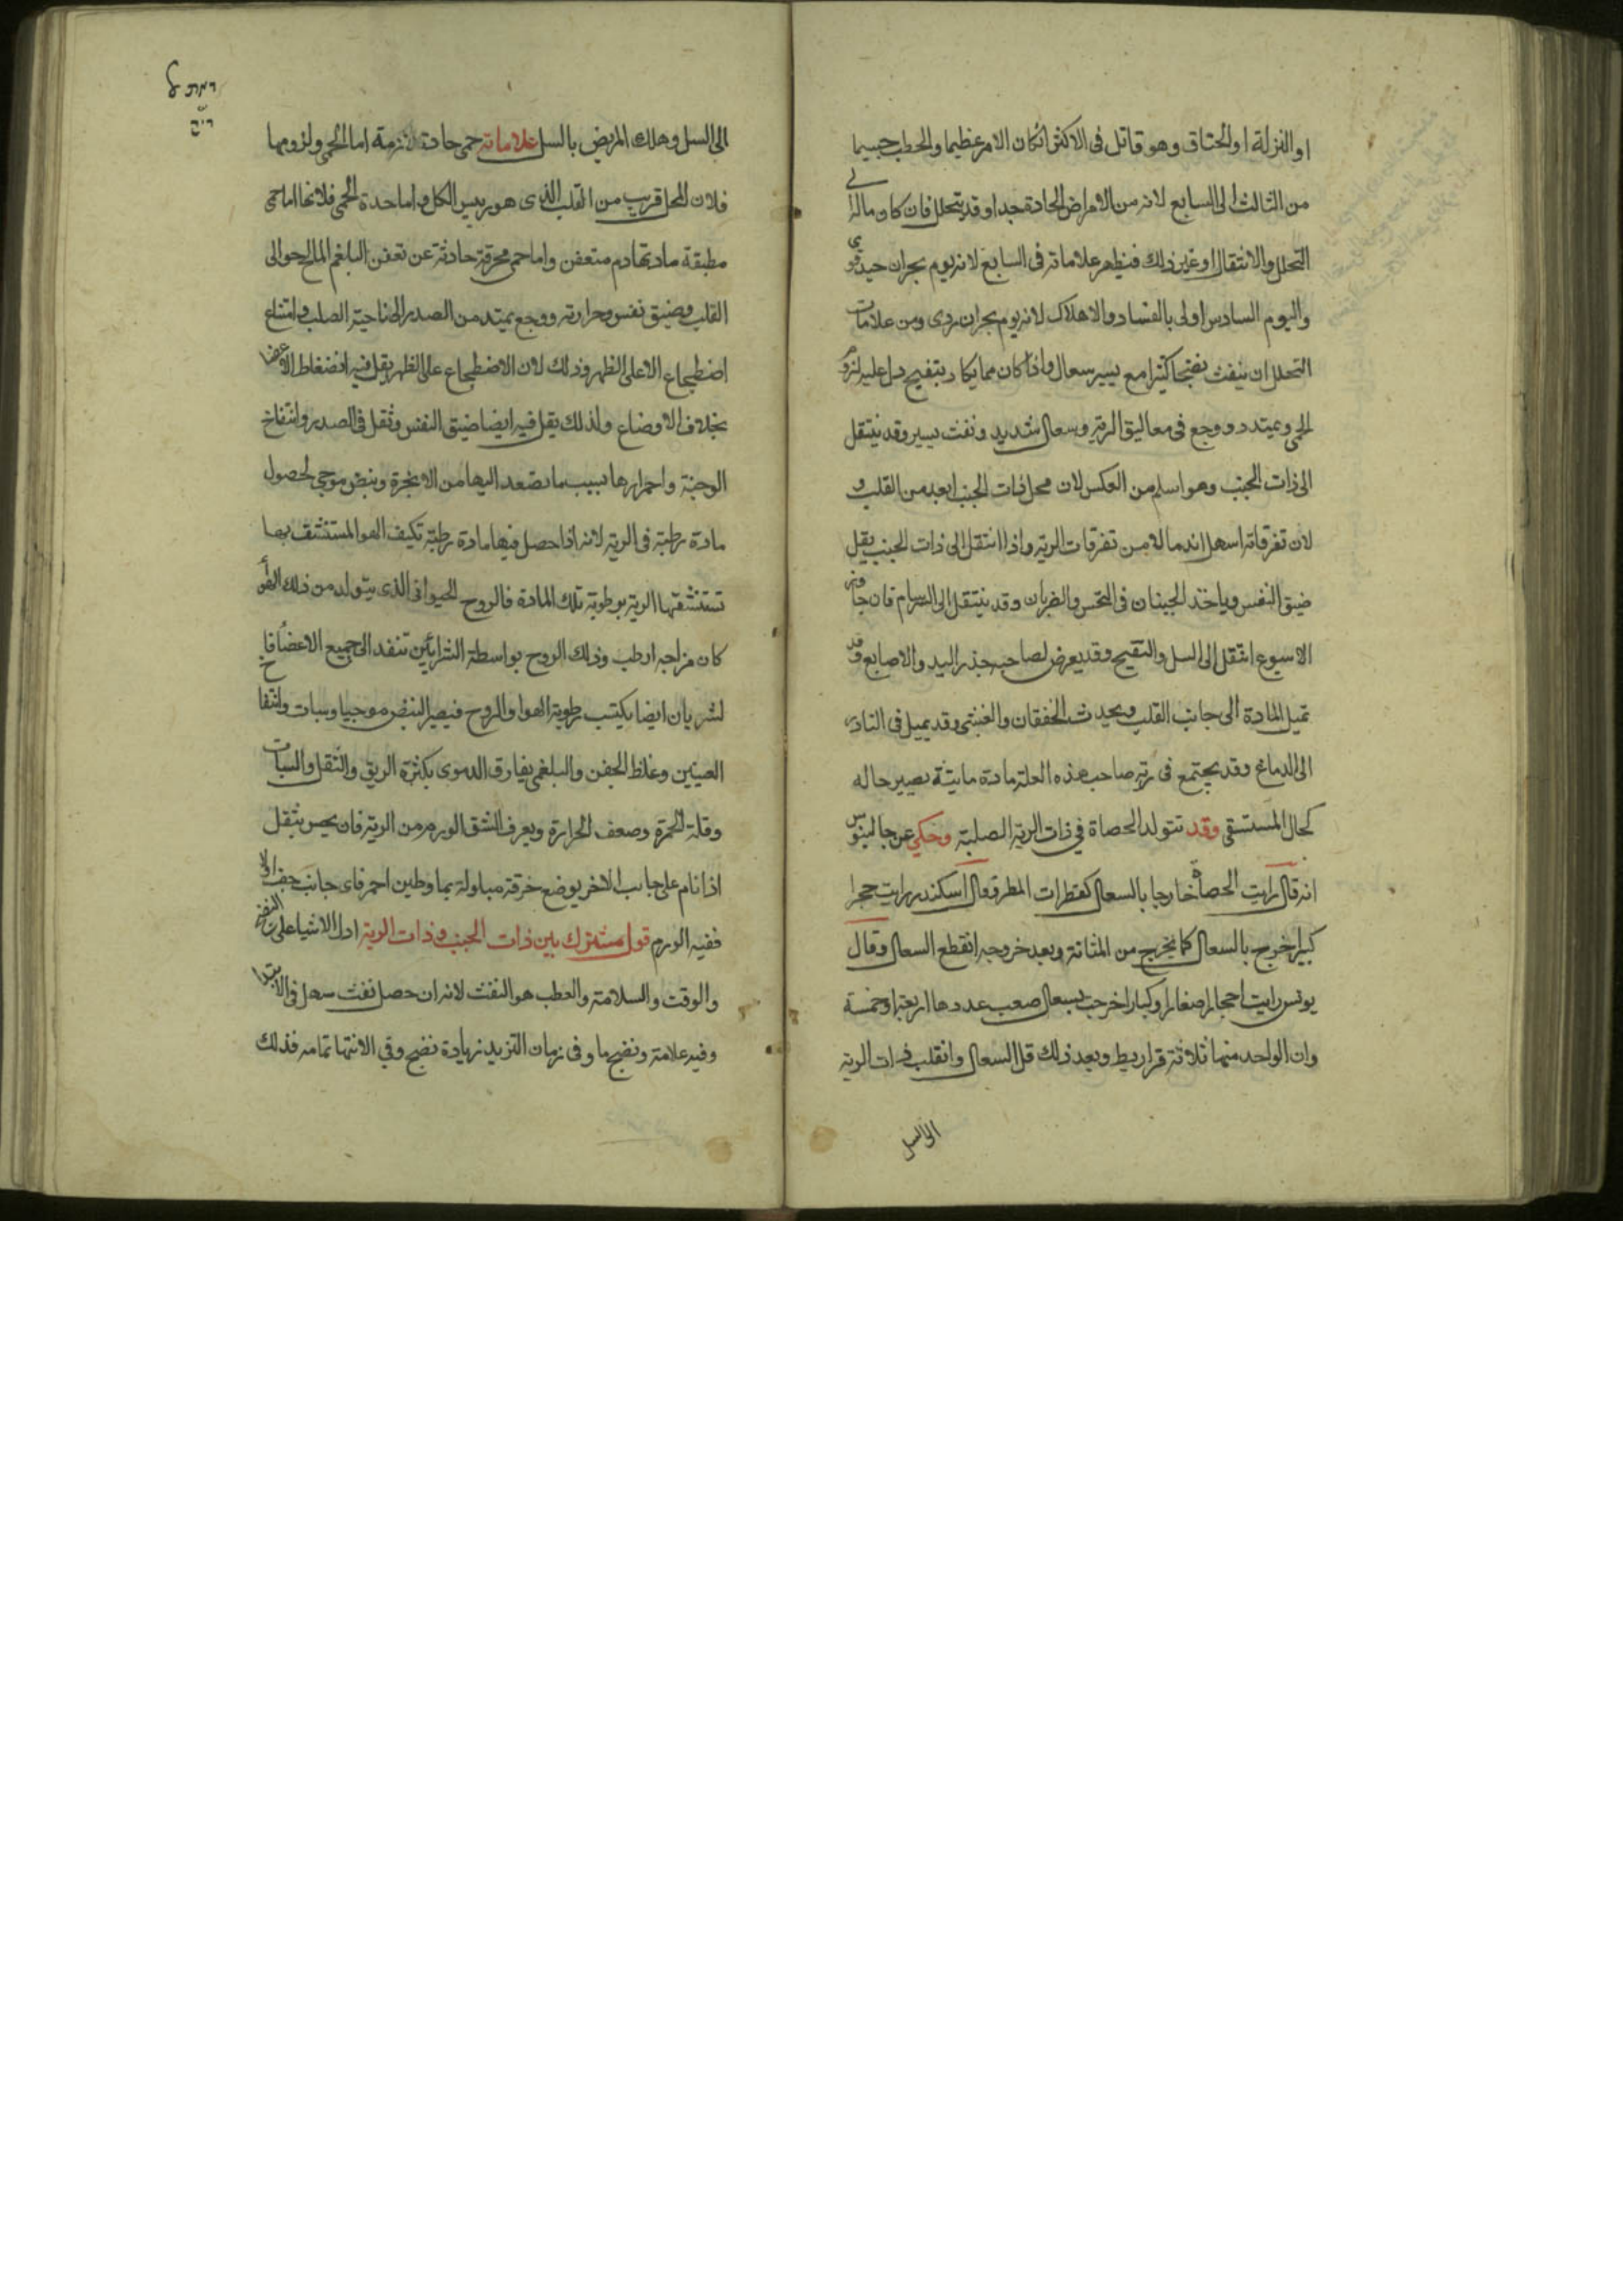 او النزلة او الخناق وهو قاتل فى الاكثر اذكان الامر عظيما والخطب جسيما
من الثالث الى السابع لانه من الامراض الحادة جدا وقد يتحلل فان كان ماله الى
التحلل والانتقال او غير ذلك فيظهر علاماته فى السابع لانه يوم بحران جيد قوى
واليوم السادس اولى بالفساد والاهلاك لانه يوم بحران ردى ومن علامات
التحلل ان ينفث نفثا كثيرا مع يسير سعال واذا كان مما يكاد يتقيح دل عليه لزوم
الحمى وتمدد ووجع فى معاليق الرية وسعال شديد ونفث يسير وقد ينتقل
الى ذات الجنب وهو اسلم من العكس لان محل ذات الجنب ابعد من القلب و
لان تفرقاته اسهل اندمالا من تفرقات الرية واذا انتقل الى ذات الجنب يقل
ضيق النفس وياخذ الجنبان فى النخس والضربان وقد ينتقل الى السرسام فان جاوز
الاسبوع انتقل الى السل والتقيح وقد يعرض لصاحبه خدر اليد والاصابع وقد
تميل المادة الى جانب القلب ويحدث الخفقان والغشى وقد يميل فى النادر
الى الدماغ وقد يجتمع فى رية صاحب هذه العلة مادة مايية يصير حاله
كحال المستسقى وقد تتولد الحصاة في ذات الرية الصلبة وحكي عن جالينوس
انه قال رايت الحصاة خارجا بالسعال كقطرات المطر وقال اسكندر رايت حجرا
كبيرا خرج بالسعال كما يخرج من المثانة وبعد خروجه انقطع السعال وقال
يونس رايت احجارا صغارا وكبارا خرجت بسعال صعب عددها اربعة او خمسة
وان الواحد منها ثلاثة قراريط وبعد ذلك قل السعال وانقلب ذات الرية
الى السل
الى السل وهلك المريض بالسل علاماته حمى حادة لازمة اما الحمى ولزومها
فلان المحل قريب من القلب الذى هو رييس الكل واما حدة الحمى فلانها اما حمى
مطبقة مادتها دم متعفن واما حمى محرقة حادثة عن تعفن البلغم المالح حوالى
القلب وضيق نفس وحرارته ووجع يمتد من الصدر الى ناحية الصلب وامتناع
اضطجاع الا على الظهر وذلك لان الاضطجاع على الظهر يقل فيه انضغاط الاعضا
بخلاف الاوضاع ولذلك يقل فيه ايضا ضيق النفس وثقل فى الصدر وانتفاخ
الوجنة واحمرارها بسبب ما يتصعد اليها من الابخرة ونبض موجى لحصول
مادة رطبة فى الرية لانه اذا حصل فيها مادة رطبة تكيف الهوا المستنشق بها
تستنشقها الرية برطوبة تلك المادة فالروح الحيوانى الذى يتولد من ذلك الهوا
كان مزاجه ارطب وذلك الروح بواسطة الشرايين تنفد الى جميع الاعضا فا
لشريان ايضا يكتسب رطوبة الهوا والروح فيصير النبض موجيا وسبات وانتفاخ
العينين وغلظ الجفن والبلغمى يفارق الدموى بكثرة الريق والثقل والسبات
وقلة الحمرة وضعف الحرارة ويعرف الشق الورم من الرية فان يحس بثقل
اذا نام على جانب الاخر يوضع خرقة مبلولة بما وطين احمر فاى جانب جف اولا
ففيه الورم قول مشترك بين ذات الجنب وذات الرية ادل الاشيا على النضج
والوقت والسلامة والعطب هو النفث لانه ان حصل نفث سهل فى الابتدا
وفيه علامة ونضج ما وفى زمان التزيد زيادة نضج وفي الانتها تمامه فذلك